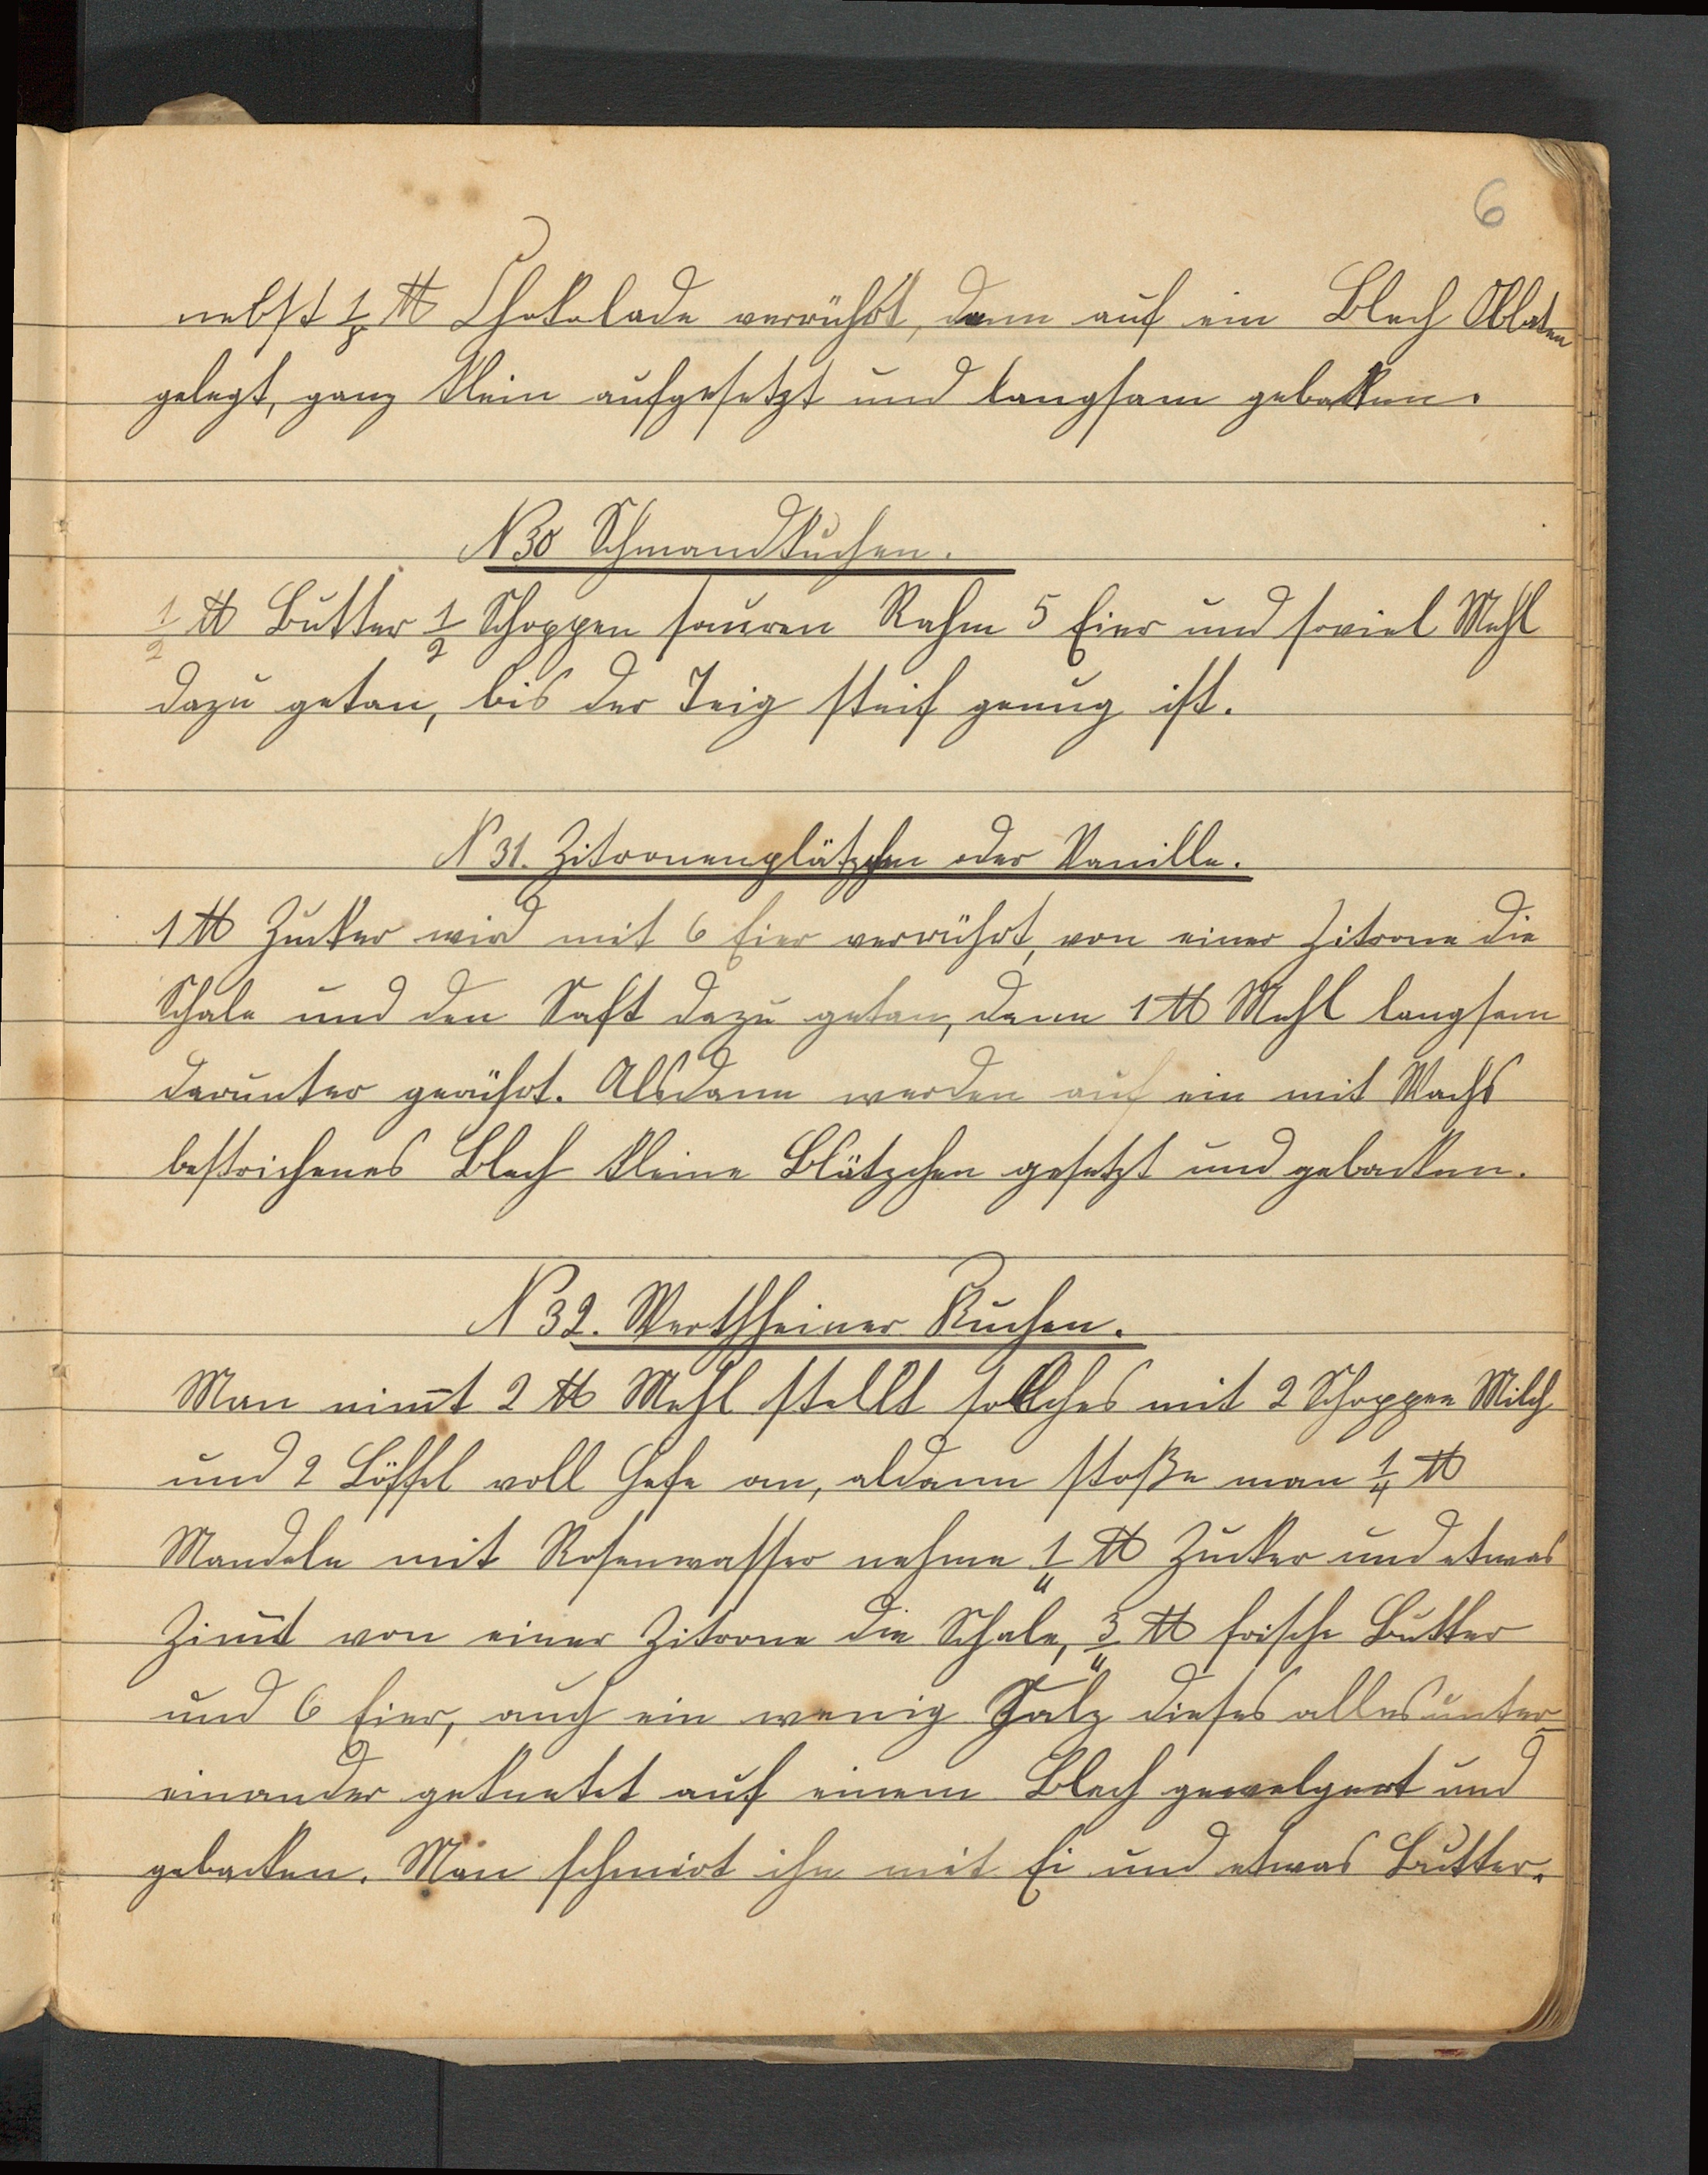 6
nebst 1/8 ℔ Chokolade verrührt, dann auf ein Blech Oblaten
gelegt, ganz klein aufgesetzt und langsam gebacken.
N 30 Schmandkuchen.
1/2 ℔ Butter 1/2 Schoppen sauren Rahm 5 Eier und soviel Mehl
dazu getan, bis der Teig steif genug ist.
N 31. Zitronenplätzchen oder Vanille.
1 ℔ Zucker wird mit 6 Eier verrührt, von einer Zitrone die
Schale und den Saft dazu getan, dann 1 ℔ Mehl langsam
darunter gerührt. Alsdann werden auf ein mit Wachs
bestrichenes Blech kleine Blätzchen gesetzt und gebacken.
N 32. Werthheimer Kuchen.
Man nim̅t 2 ℔ Mehl stellt solches mit 2 Schoppen Milch
und 2 Löffel voll Hefe an, aldann stoße man 1/4 ℔
Mandeln mit Rosenwasser nehme 1/4 ℔ Zucker und etwas
Zim̅t von einer Zitrone die Schale, 3/4 ℔ frische Butter
und 6 Eier, auch ein wenig Salz dieses alles unter-
einander geknetet auf einem Blech gewelgert und
gebacken. Man schmirt ihn mit Ei und etwas Butter.